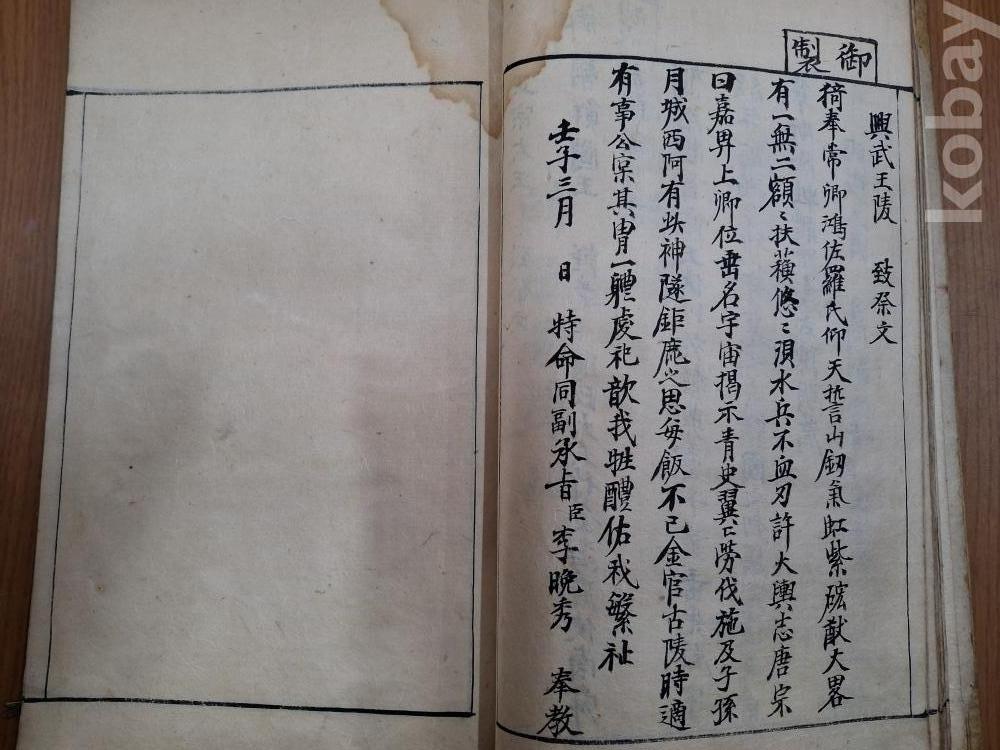 御製
興武王陵 致祭文
猗奉常卿鴻佐羅氏仰天誓山釼氣虹紫硡猷大畧
有一無二額〻扶蘓悠〻浿水兵不血刃許大輿志唐宗
曰嘉畀上卿位垂名宇宙揭示青史翼〻勞伐施及子孫
月城西阿有 神隧鉅庬之思每飯不已金官古陵時適
有事公寔其冑一軆虔祀歆我牲醴佑我繁祉
壬子三月 日 特命同副承旨臣李晚秀 奉教
kobay